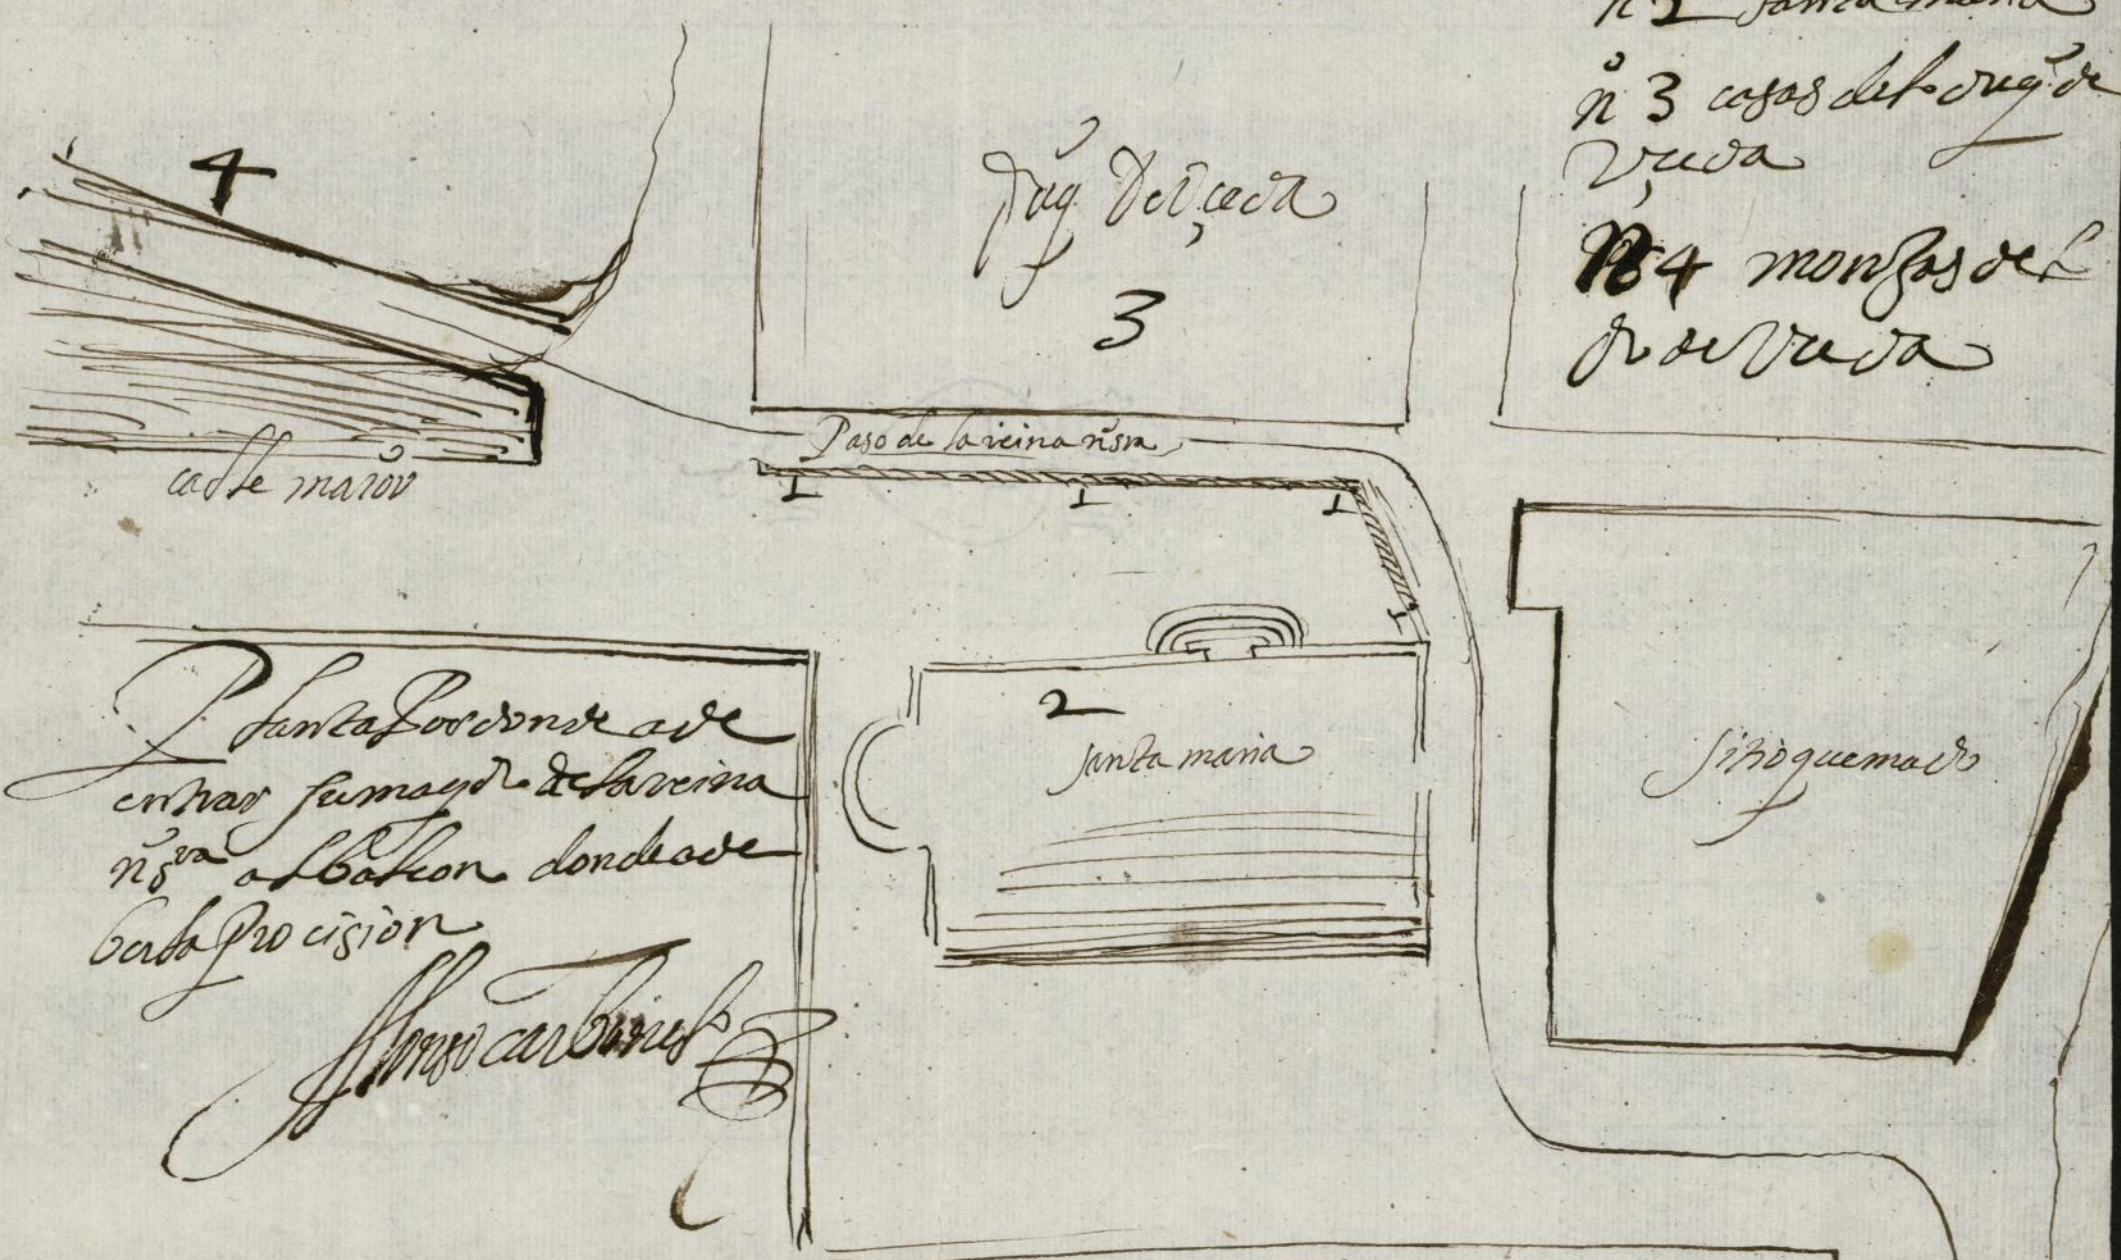 nº 2 santa maria
nº 3 casas del duqᵉ de
Vçeda
nº 4 monjas del
de Vceda
4
duqᵉ De Vçeda
3
Paso de la reina nr̃sra
calle maior
1 1 1
1
2
santa maria
sitio quemado
Planta Por donde a de
entrar su magᵈ de la reina
nr̃sᵗʳᵃ al balcon donde a de
ber la Procision
Alonso carbonel